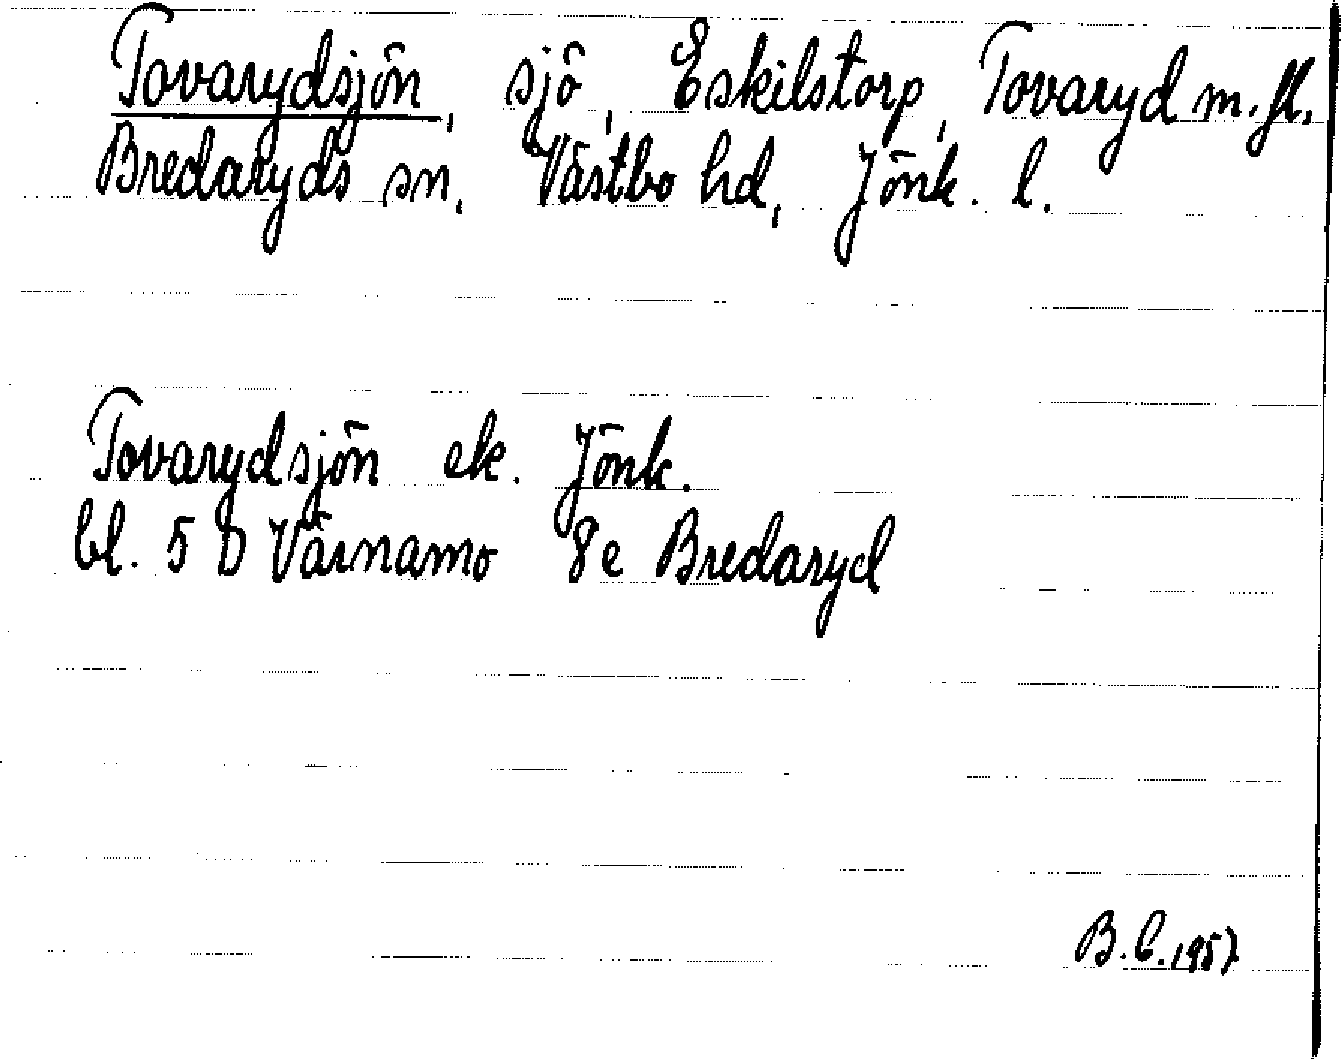 Tovarydsjön, sjö, Eskilstorp, Tovaryd m. fl.
Bredaryds sn, Västbo hd, Jönk. l.
Tovarydsjön ek. Jönk.
bl. 5 D Värnamo 8e Bredaryd
B.C. 1957